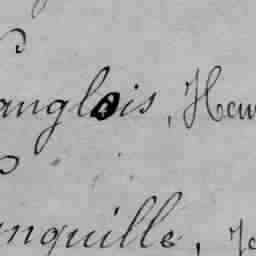 anglois, Hen
nquille, Je